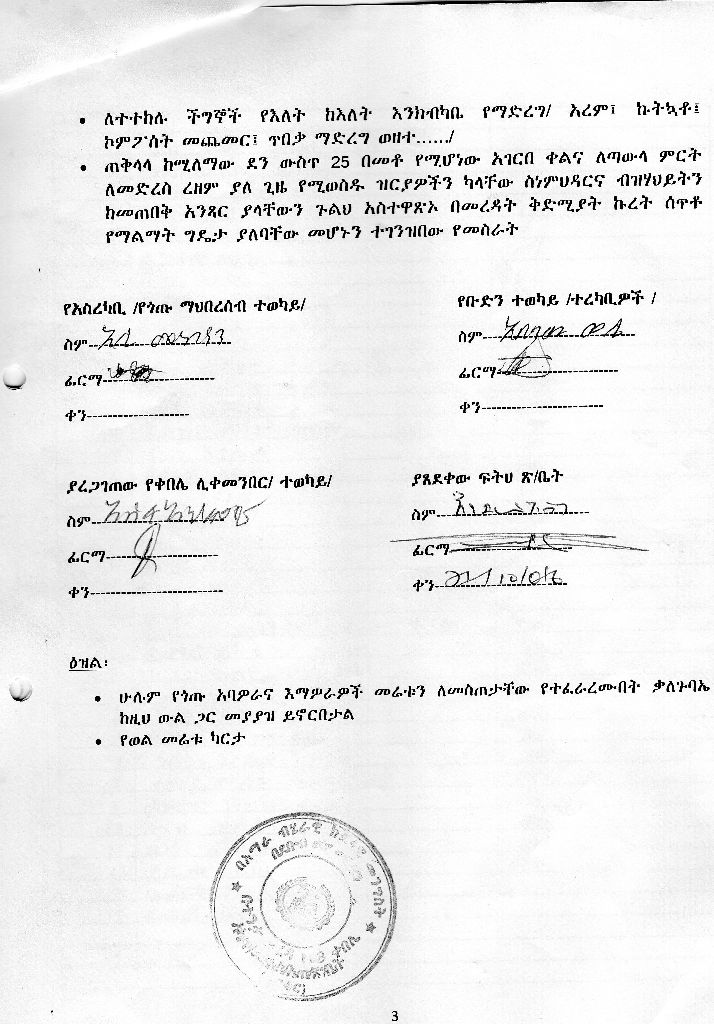 • ለተተከሉ ችግኞች የእለት ከእለት እንክብካቤ የማድረግ/ አረም፣ ኩትኳቶ፤
ኮምፖስት መጨመር፤ ጥበቃ ማድረግ ወዘተ....../
• ጠቅላላ ከሚለማው ደን ውስጥ 25 በመቶ የሚሆነው አገርበ ቀልና ለጣውላ ምርት
ለመድረስ ረዘም ያለ ጊዜ የሚወስዱ ዝርያዎችን ካላቸው ስነምህዳርና ብዝሃህይትን
ከመጠበቅ አንጻር ያላቸውን ጉልህ አስተዋጽኦ በመረዳት ቅድሚያት ኩረት ሰጥቶ
የማልማት ግዴታ ያለባቸው መሆኑን ተገንዝበው የመስራት
የአስረካቢ /የጎጡ ማህበረሰብ ተወካይ/
ስም
ፊርማ
ቀን
የቡድን ተወካይ /ተረካቢዎች /
ስም
ፊርማ
ቀን
ያረጋገጠው የቀበሌ ሊቀመንበር/ ተወካይ/
ስም
ፊርማ
ቀን
ያጸደቀው ፍትህ ጽ/ቤት
ስም
ፊርማ
ቀን
ዕዝል፡
• ሁሉም የጎጡ አባዎራና እማዎራዎች መሬቱን ለመስጠታቸው የተፈራረሙበት ቃለጉባኤ
ከዚህ ውል ጋር መያያዝ ይኖርበታል
• የወል መሬቱ ካርታ
በአማራ ብሄራዊ ክልላዊ መንግስት
3